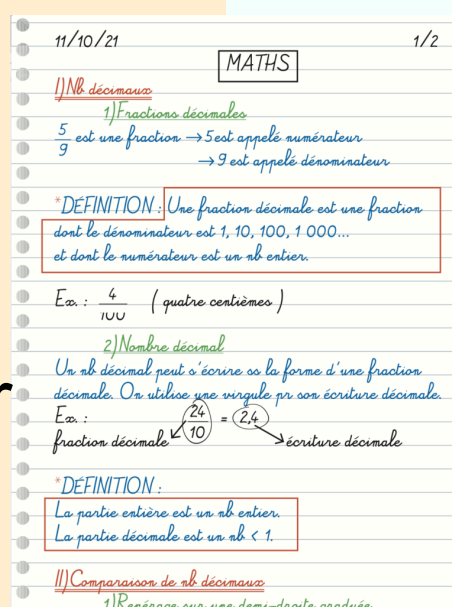 11/10/21 1/2
MATHS
I) Nb décimaux
1) Fractions décimales
5/9 est une fraction → 5 est appelé numérateur
→ 9 est appelé dénominateur
*DÉFINITION : Une fraction décimale est une fraction
dont le dénominateur est 1, 10, 100, 1 000...
et dont le numérateur est un nb entier.
Ex. : 4/100 ( quatre centièmes )
2) Nombre décimal
Un nb décimal peut s'écrire ss la forme d'une fraction
décimale. On utilise une virgule pr son écriture décimale.
Ex :
24/10 = 2,4
fraction décimale écriture décimale
*DÉFINITION :
La partie entière est un nb entier.
La partie décimale est un nb < 1.
II) Comparaison de nb décimaux
1) Repérage sur une demi-droite graduée